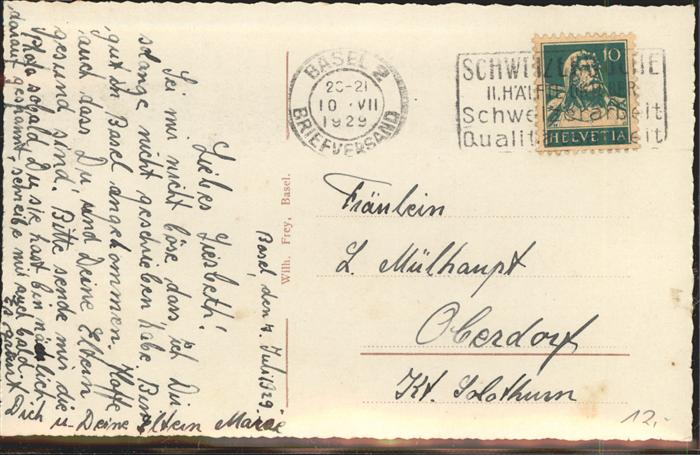 BASEL 2
20-21
10.VII
1929
BRIEFVERSAND
SCHWEIZERWOCHE
II. HÄLFTE
Schweizerarbeit
Qualit
10
HELVETIA
Basel, den 4. Juli 1929
Liebes Liesbeth!
Sei mir nicht böse dass ich Dir
solange nicht geschrieben habe. Bin
gut in Basel angekommen. Hoffe
auch dass Du, und Deine Eltern
gesund sind. Bitte sende mir die
Photo sobald Du sie hast bin nämlich
darauf gespannt, schreibe mir auch bald.
Es grüsst
Dich u. Deine Eltern Marie
Wilh. Frey, Basel.
Fräulein
L. Mülhaupt
Oberdorf
Kt. Solothurn
12.-